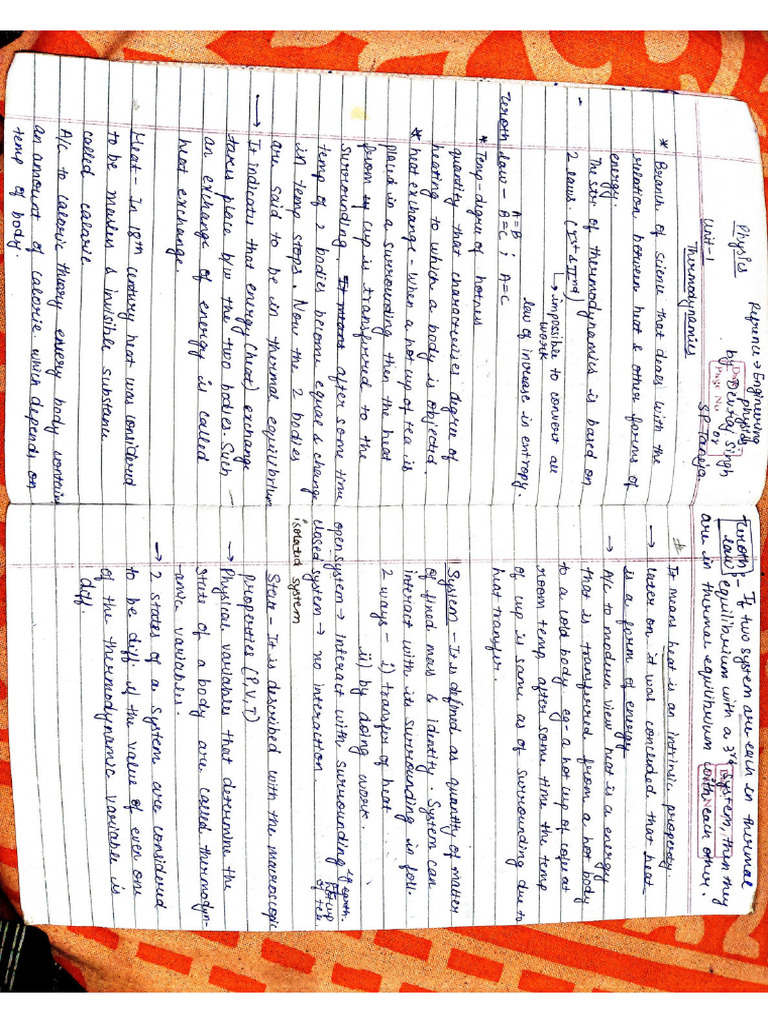 Physics
Reference → Engineering
physics
by Devraj Singh
or
SP Taneja
Unit-1
Thermodynamics
* Branch of science that deals with the
relation between heat & other forms of
energy.
The str of thermodynamics is based on
2 laws. (Ist & IInd)
↳ impossible to convert all
work
law of increase in entropy.
Zeroth law - A=B ; A=C
B=C ;
* Temp- degree of hotness
quantity that characterises degree of
heating to which a body is objected.
* heat exchange - When a hot cup of tea is
placed in a surrounding then the heat
from cup is transferred to the
surrounding. It means after some time
temp of 2 bodies become equal & change
in temp stops. Now the 2 bodies
are said to be in thermal equilibrium
→ It indicates that energy (heat) exchange
takes place b/w the two bodies. Such
an exchange of energy is called
heat exchange.
Heat - In 18th century heat was considered
to be massless & invisible substance
called calorie
A/c to caloric theory every body contains
an amount of calorie which depends on
temp of body.
Zeroth law :- If two system are each in thermal
equilibrium with a 3rd system, then they
are in thermal equilibrium with each other.
It means heat is an intrinsic property.
→ Later on it was concluded that heat
is a form of energy
→ A/c to modern view heat is a energy
that is transferred from a hot body
to a cold body. eg- a hot cup of coffee at
room temp after some time the temp
of cup is same as of surrounding due to
heat transfer.
System - It is defined as quantity of matter
of fixed mass & identity. System can
interact with its surrounding in foll.
2 ways - i) transfer of heat
ii) by doing work.
open system → interact with surrounding eg earth,
hot cup
of tea.
closed system → no interaction.
isolated system
State - It is described with the macroscopic
properties (P,V,T)
→ Physical variables that determine the
state of a body are called thermodyn-
amic variables.
→ 2 states of a system are considered
to be diff if the value of even one
of the thermodynamic variable is
diff.